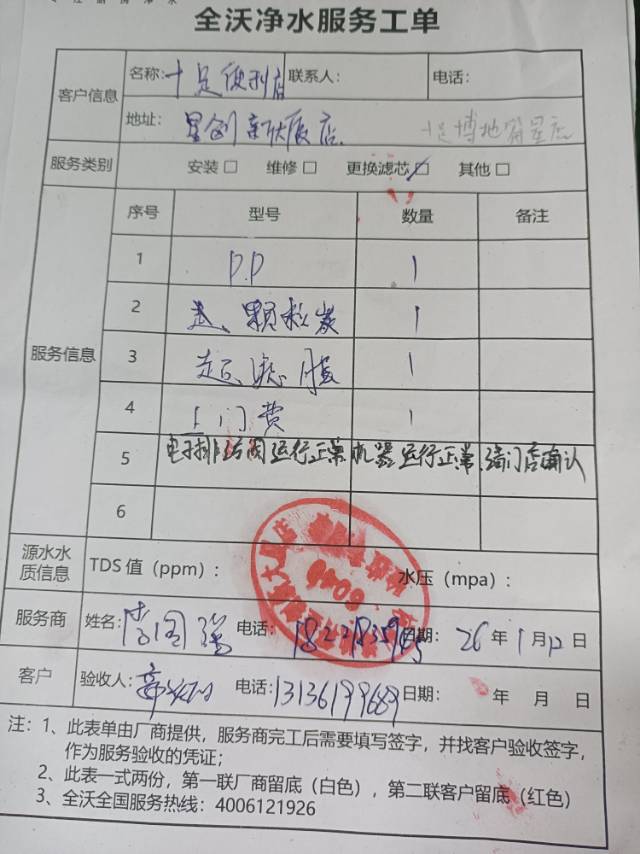 全沃净水服务工单
客户信息 名称: 十足便利店 联系人: 电话:
地址: 星创新秋厦店
服务类别 安装□ 维修□ 更换滤芯☑ 其他□
服务信息 序号 型号 数量 备注
1 P.P 1
2 颗粒炭 1
3 超滤膜 1
4 上门费 1
5 电子排污阀运行正常 机器运行正常,请门店确认
6
源水水质信息 TDS 值（ppm）: 水压（mpa）:
服务商 姓名: 李国强 电话: 日期: 26 年 1 月 12 日
客户 验收人: 电话: 13136199689 日期: 年 月 日
注: 1、此表单由厂商提供，服务商完工后需要填写签字，并找客户验收签字，
作为服务验收的凭证；
2、此表一式两份，第一联厂商留底（白色），第二联客户留底（红色）
3、全沃全国服务热线: 4006121926